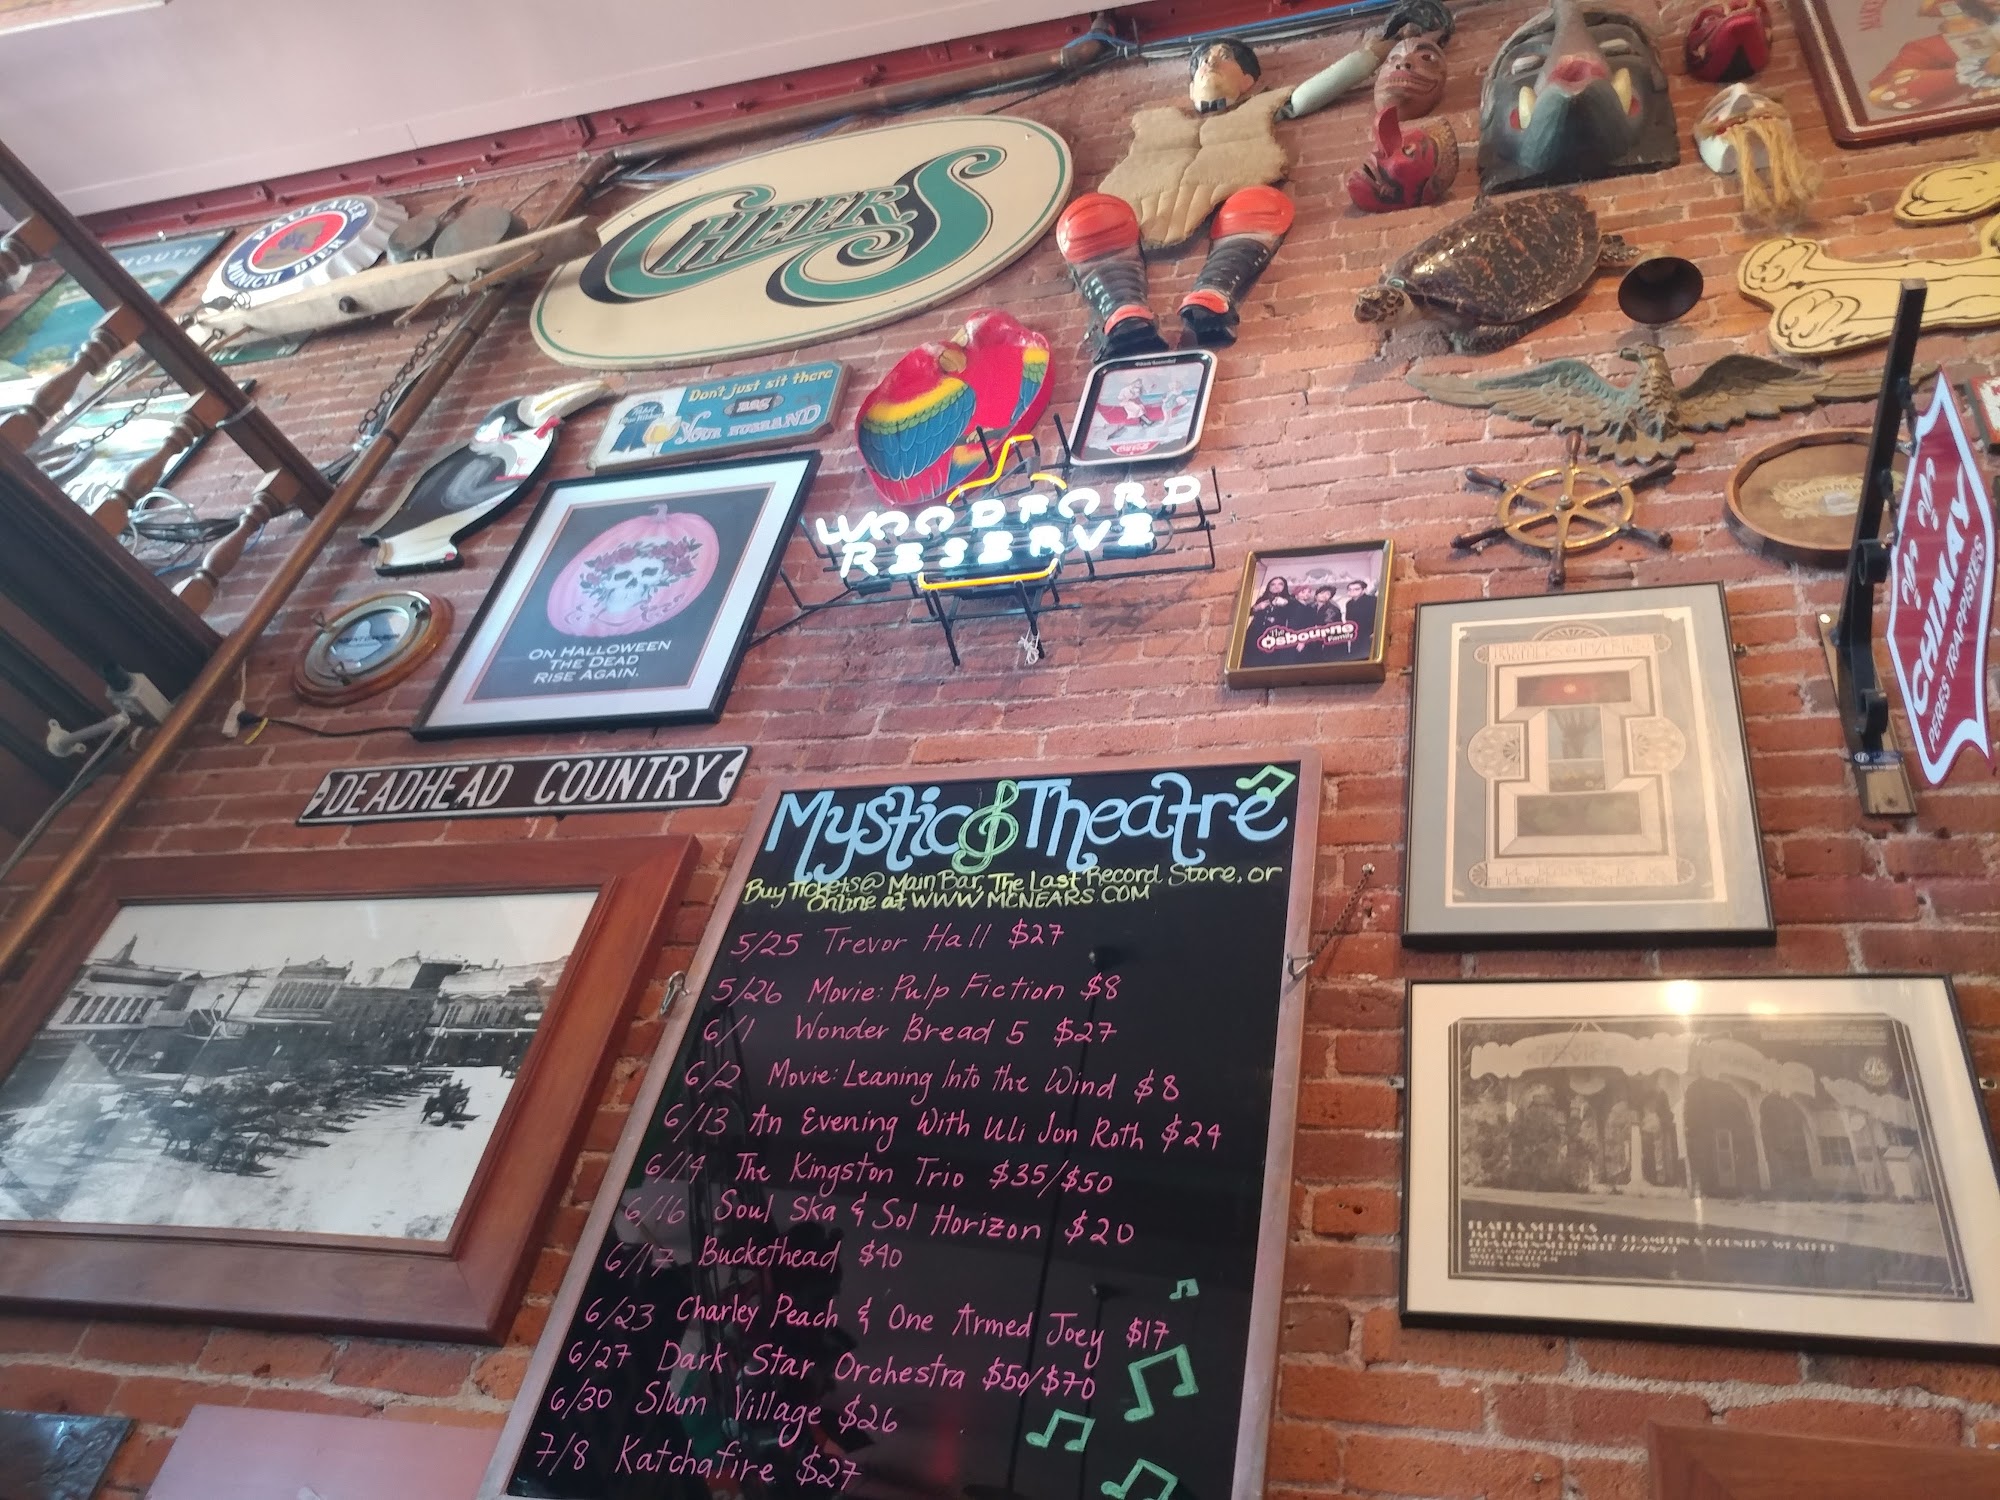 MOUTH
PAULANER
MUNICH BIER
CHEERS
Don't just sit there
nag
Your HUSBAND
Pabst
Blue Ribbon
WOODFORD
RESERVE
The
Osbourne
Family
CHIMAY
PERES TRAPPISTES
ON HALLOWEEN
THE DEAD
RISE AGAIN.
DEADHEAD COUNTRY
Mystic Theatre
Buy Tickets @ Main Bar, The Last Record Store, or
Online at WWW.MCNEARS.COM
5/25 Trevor Hall $27
5/26 Movie: Pulp Fiction $8
6/1 Wonder Bread 5 $27
6/2 Movie: Leaning Into the Wind $8
6/13 An Evening With Uli Jon Roth $24
6/14 The Kingston Trio $35/$50
6/16 Soul Ska & Sol Horizon $20
6/17 Buckethead $40
6/23 Charley Peach & One Armed Joey $17
6/27 Dark Star Orchestra $50/$70
6/30 Slum Village $26
7/8 Katchafire $27